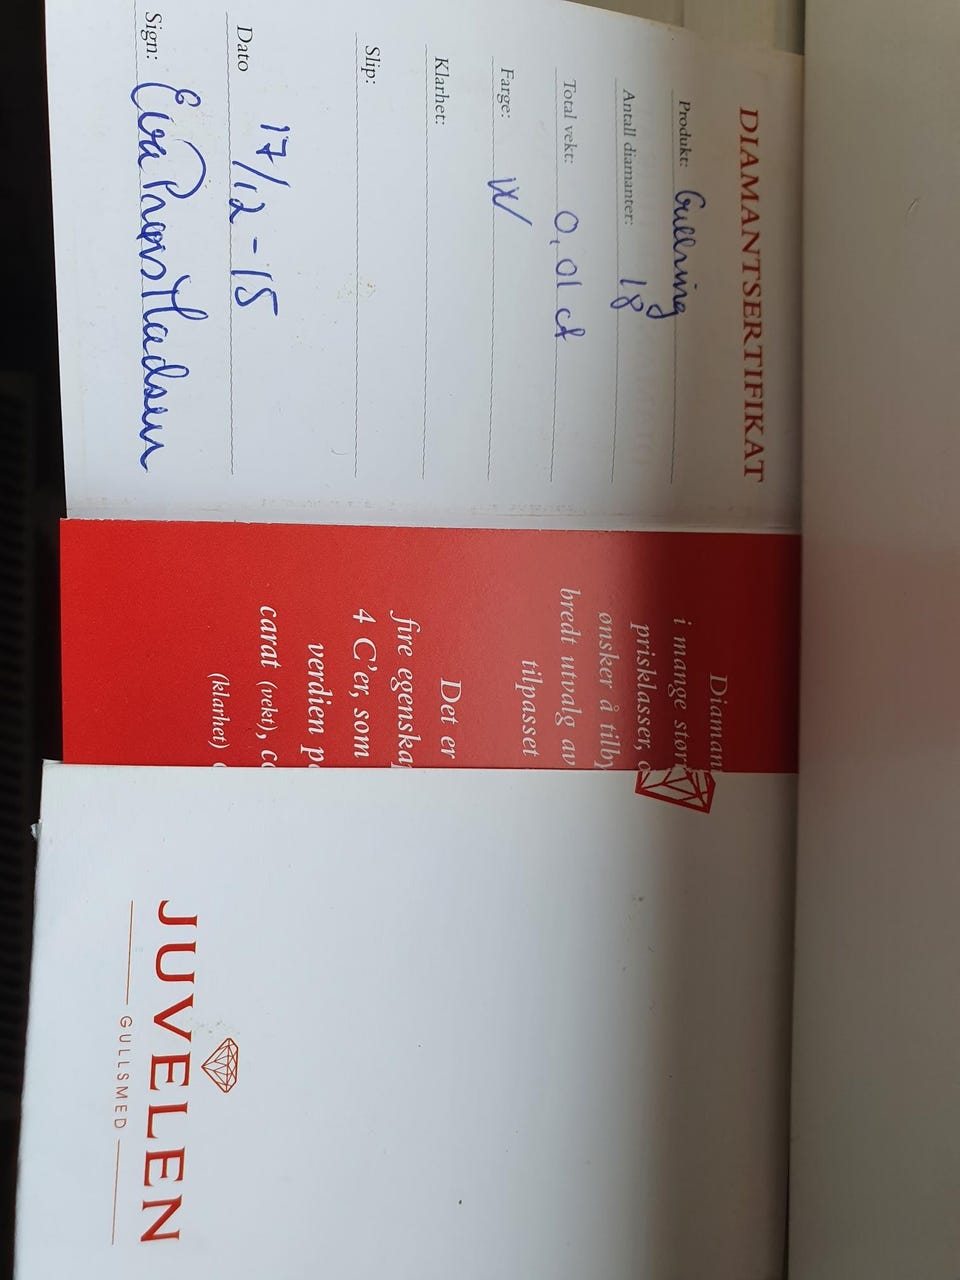 DIAMANTSERTIFIKAT
Produkt: Gullring
Antall diamanter: 18
Total vekt: 0,01 ct
Farge: W
Klarhet:
Slip:
Dato 17/12-15
Sign: Eva Madsen
Diaman
i mange stør
prisklasser,
ønsker å tilby
bredt utvalg av
tilpasset
Det er
fire egenska
4 C'er, som
verdien p
carat (vekt), c
(klarhet)
JUVELEN
GULLSMED